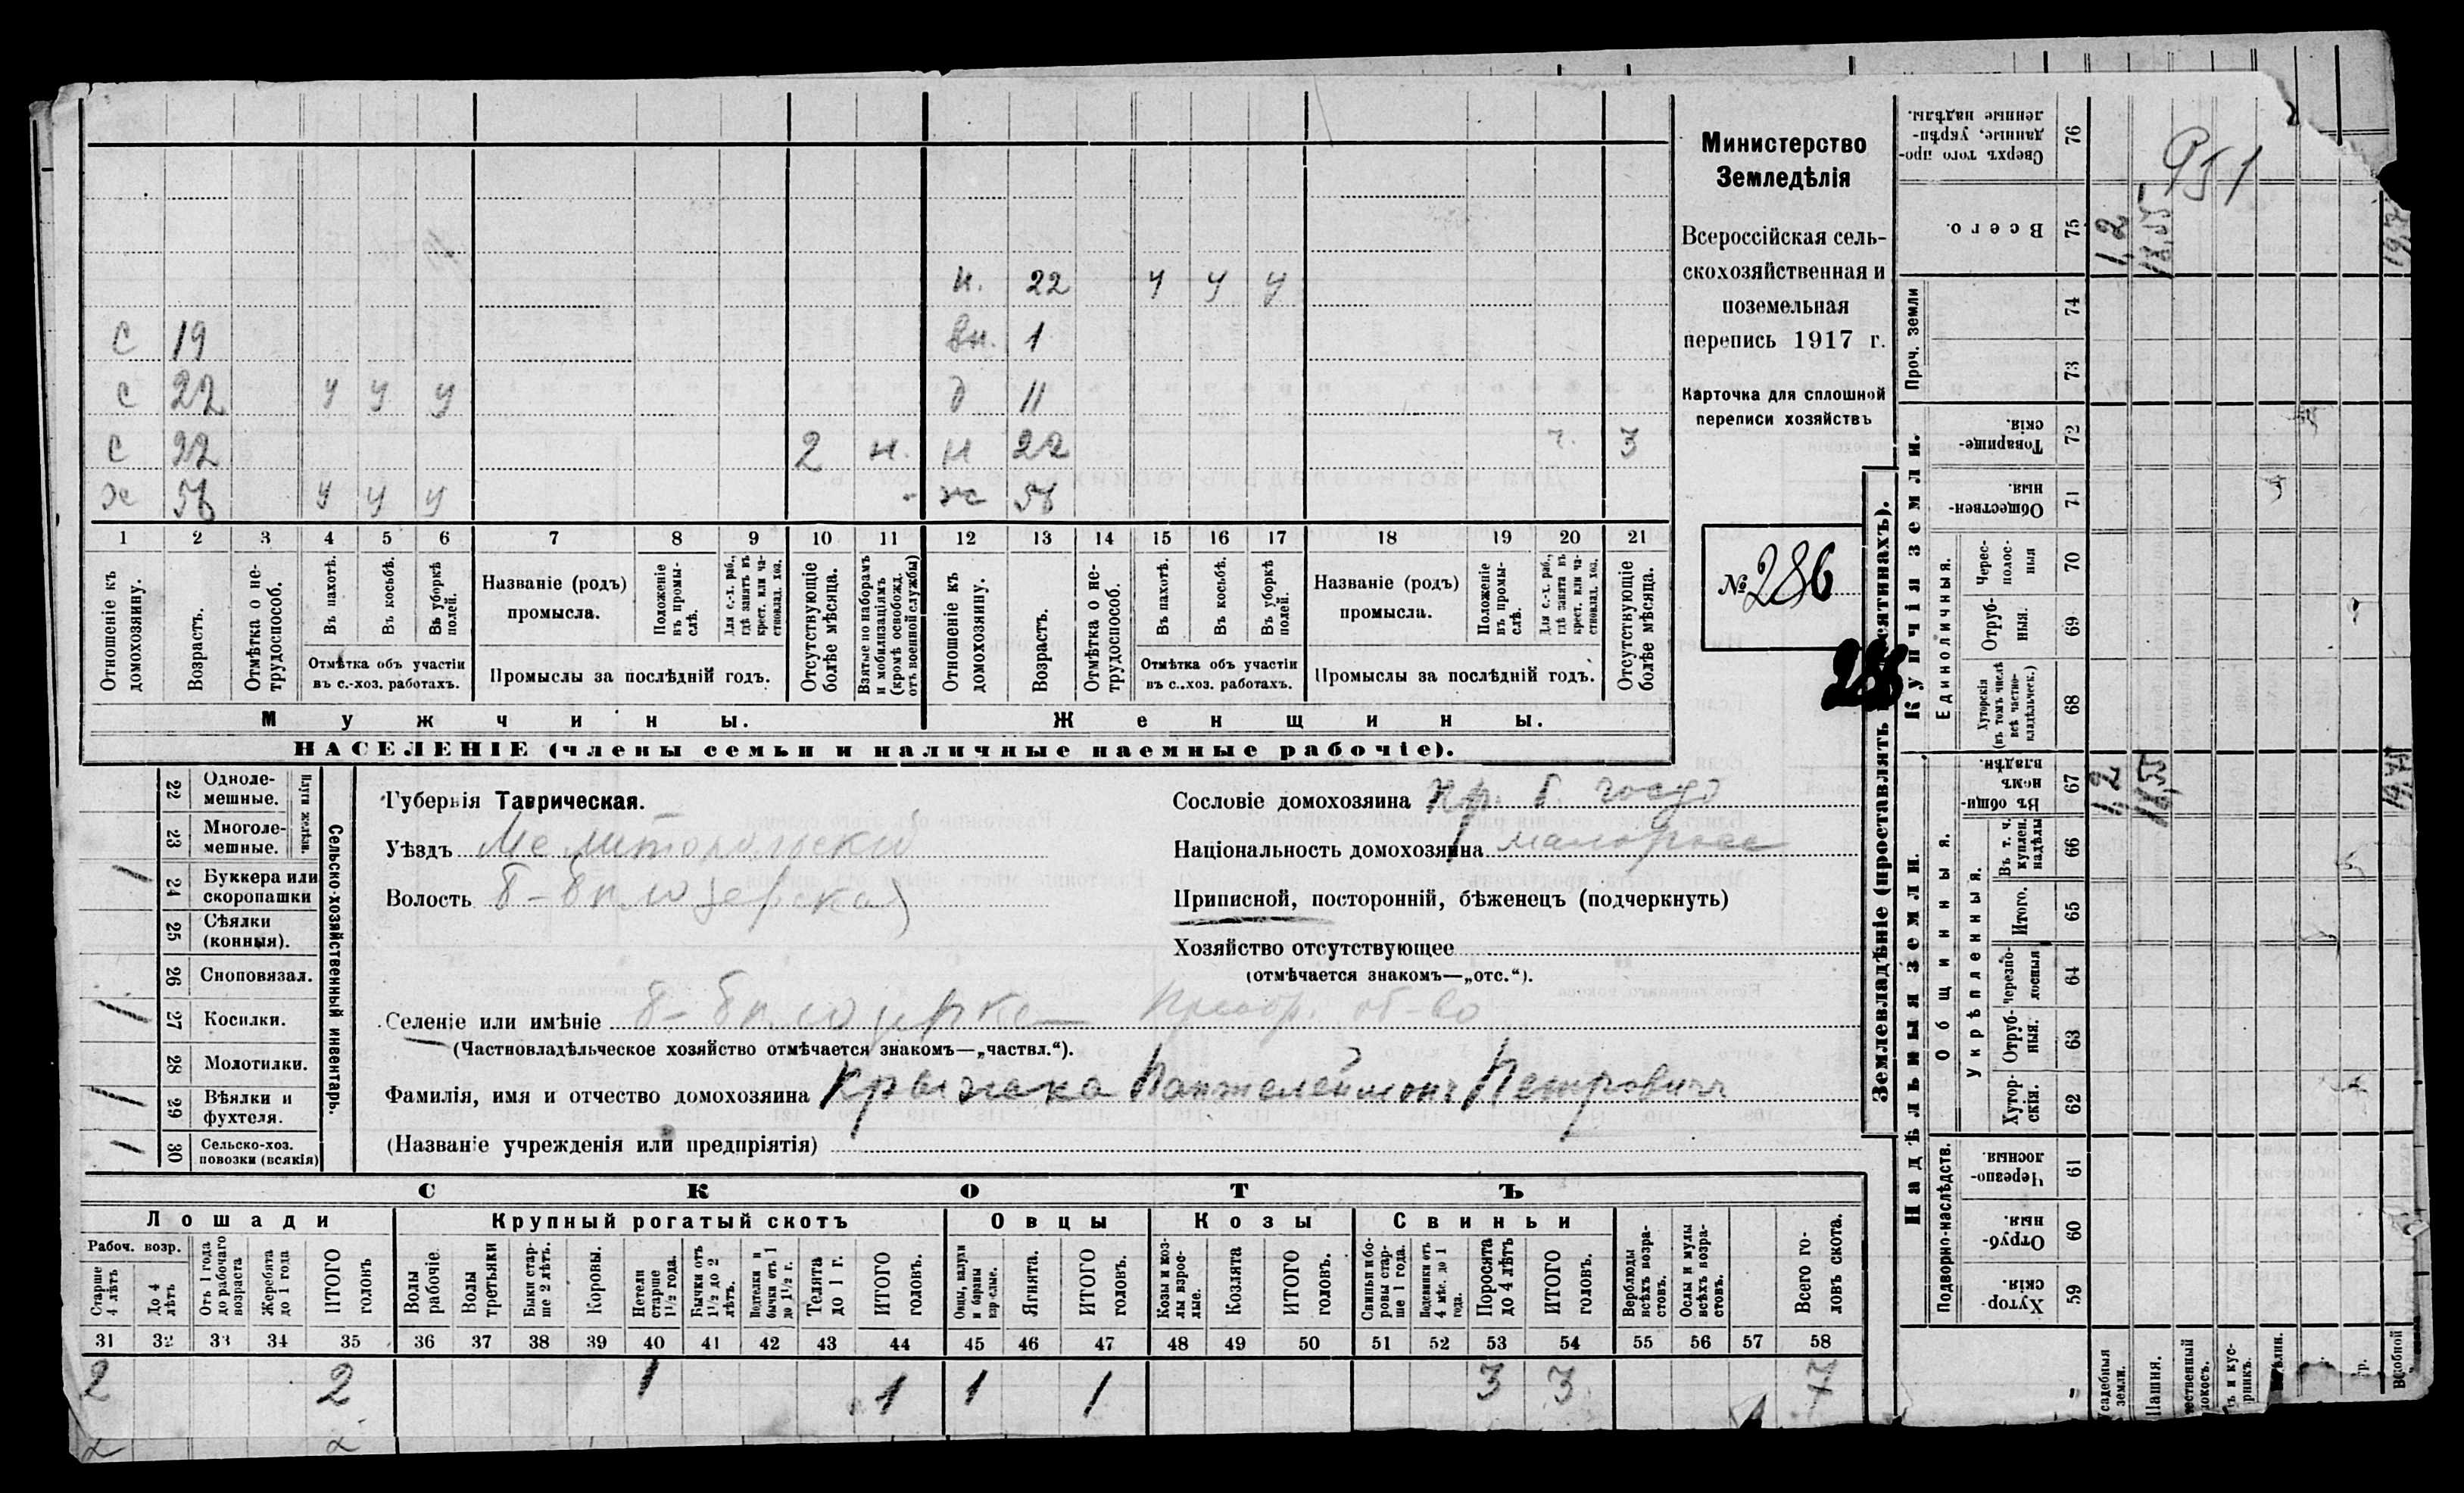 Министерство
Земледѣлія
Всероссійская сель-
скохозяйственная и
поземельная
перепись 1917 г.
Карточка для сплошной
переписи хозяйствъ
№ 286
286
951
н. 22 у у у
с 19 вн. 1
с 22 у у у д 11
с 22 2 н. н 22 г. 3
х 56 у у у ж 56
1 2 3 4 5 6 7 8 9 10 11 12 13 14 15 16 17 18 19 20 21
Отношеніе къ домохозяину.
Возрастъ.
Отмѣтка о не-трудоспособ.
Въ пахотѣ.
Въ косьбѣ.
Въ уборкѣ полей.
Отмѣтка объ участіи
въ с.-хоз. работахъ.
Названіе (родъ)
промысла.
Положеніе въ промы-слѣ.
Для с.-х. раб., гдѣ занятъ въ крест. или ча-стновлад. хоз.
Промыслы за послѣдній годъ.
Отсутствующіе болѣе мѣсяца.
Взятые по наборамъ и мобилизаціямъ (кромѣ освобожд. отъ военной службы)
Отношеніе къ домохозяину.
Возрастъ.
Отмѣтка о не-трудоспособ.
Въ пахотѣ.
Въ косьбѣ.
Въ уборкѣ полей.
Отмѣтка объ участіи
въ с..хоз. работахъ.
Названіе (родъ)
промысла.
Положеніе въ промы-слѣ.
Для с.-х. раб., гдѣ занята въ крест. или ча-стновлад. хоз.
Промыслы за послѣдній годъ.
Отсутствующіе болѣе мѣсяца.
Мужчины. Женщины.
НАСЕЛЕНІЕ (члены семьи и наличные наемные рабочіе).
22 Одноле-мешные.
23 Многоле-мешные.
Плуги желѣзн.
24 Буккера или скоропашки 1
25 Сѣялки (конныя).
26 Сноповязал.
27 Косилки. 1
28 Молотилки.
29 Вѣялки и фухтеля. 1
30 Сельско-хоз. повозки (всякія) 1
Сельско-хозяйственный инвентарь.
Губернія Таврическая.
Уѣздъ Мелитопольскій
Волость Б-Бѣлозерская
Селеніе или имѣніе Б-Бѣлозерке Преобр. об-во
(Частновладѣльческое хозяйство отмѣчается знакомъ—„частвл.“).
Фамилія, имя и отчество домохозяина Крыжака Пантелеймонъ Петровичъ
(Названіе учрежденія или предпріятія)
Сословіе домохозяина Кр. б. госуд
Національность домохозяина малоросс
Приписной, посторонній, бѣженецъ (подчеркнуть)
Хозяйство отсутствующее
(отмѣчается знакомъ—„отс.“).
СКОТЪ
Лошади Крупный рогатый скотъ Овцы Козы Свиньи
Рабоч. возр.
Старше 4 лѣтъ
До 4 лѣтъ
Отъ 1 года до рабочаго возраста
Жеребята до 1 года
ИТОГО головъ
Волы рабочіе
Волы третьяки
Быки стар-ше 2 лѣтъ.
Коровы.
Нетели старше 1½ года.
Бычки отъ 1½ до 2 лѣтъ.
Подтелки и бычки отъ 1 до 1½ г.
Телята до 1 г.
ИТОГО головъ.
Овцы, валухи и бараны взрослые.
Ягнята.
ИТОГО головъ.
Козы и коз-лы взрос-лые.
Козлята
ИТОГО головъ.
Свиньи и бо-ровы стар-ше 1 года.
Подсвинки отъ 4 мѣс. до 1 года.
Поросята до 4 лѣтъ
ИТОГО головъ.
Верблюды всѣхъ возра-стовъ.
Ослы и мулы всѣхъ возра-стовъ.
Всего го-ловъ скота.
31 32 33 34 35 36 37 38 39 40 41 42 43 44 45 46 47 48 49 50 51 52 53 54 55 56 57 58
2 2 1 1 1 1 3 3 7
2 2
Землевладѣніе (проставлять сятинахъ).
Надѣльныя земли. Купчія земли. Проч. земли
Подворно-наслѣдств. Общинныя. Укрѣпленныя. Единоличныя.
76 Сверхъ того про-данные, укрѣп-ленные надѣлы.
75 Всего. 1,2 18,55 19,75
74
73
72 Товарище-скія.
71 Обществен-ныя.
70 Черес-полос-ныя
69 Отруб-ныя.
68 Хуторскія (въ томъ числѣ всѣ частно-владѣльческ.)
67 Въ общи-номъ владѣн. 1,2 18,55 19,75
66 Въ т. ч. куплен. надѣлы
65 Итого.
64 Черезпо-лосныя
63 Отруб-ныя.
62 Хутор-скія.
61 Черезпо-лосныя.
60 Отруб-ныя.
59 Хутор-скія.
Усадебныя земли.
Пашня.